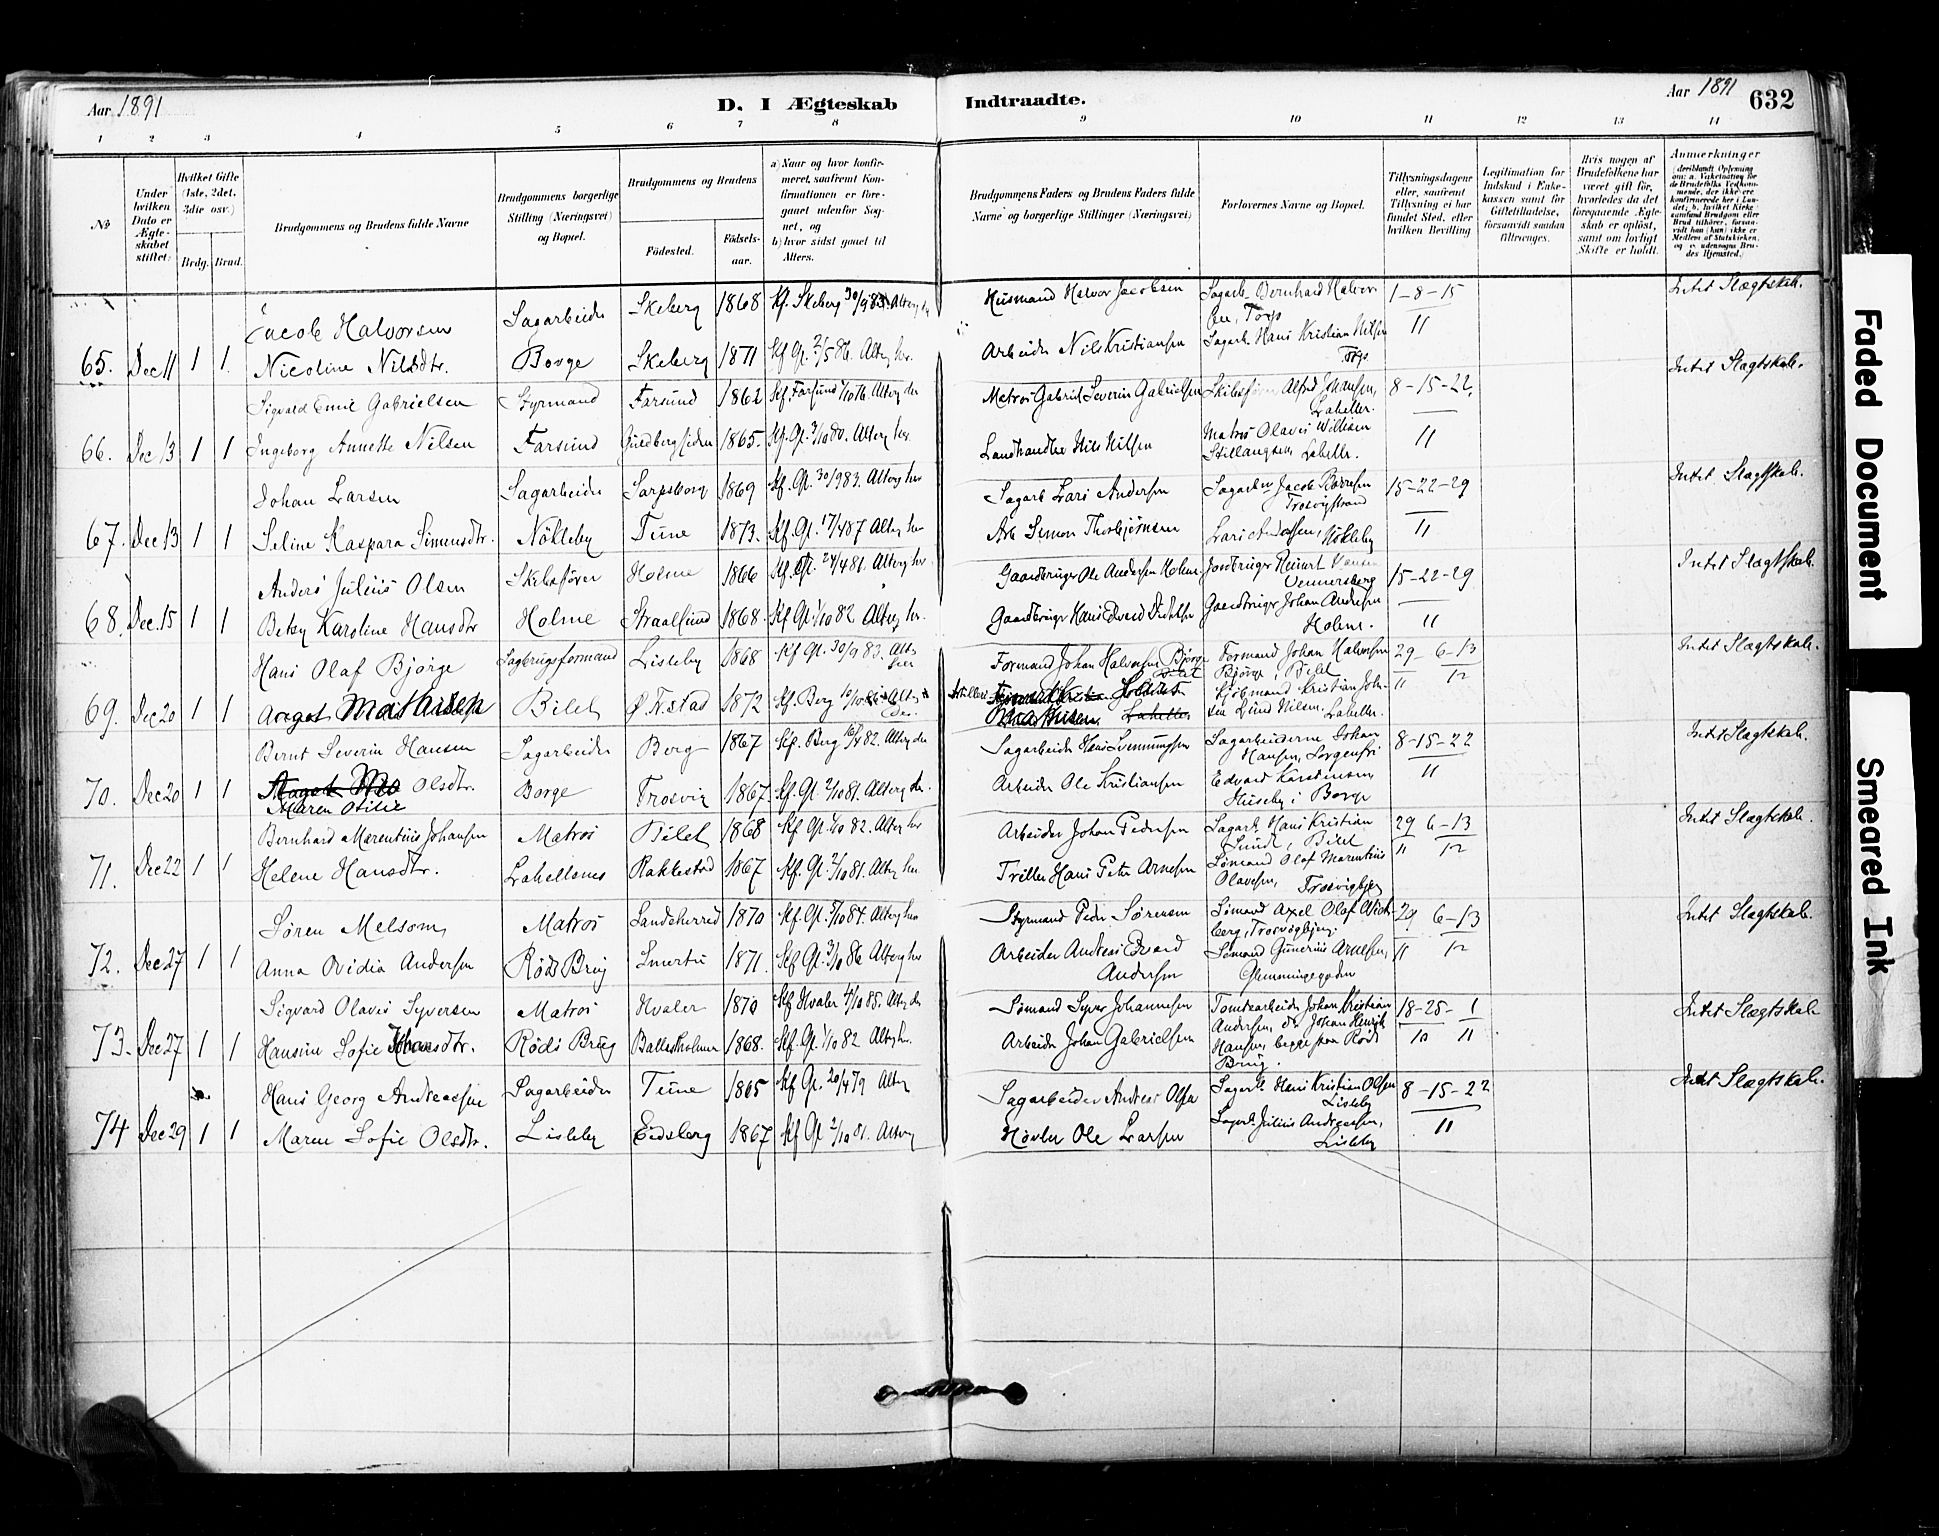 Aar 1891
D. I Ægteskab Indtraadte.
Aar 1891 632
1 2 3 4 5 6 7 8 9 10 11 12 13 14
№
Under hvilken Dato er Ægteskabet stiftet.
Hvilket Gifte (1ste, 2det, 3die osv.)
Brdg. Brud.
Brudgommens og Brudens fulde Navne
Brudgommens borgerlige Stilling (Næringsvei) og Bopæl.
Brudgommens og Brudens
Födested. Födsels-aar.
a) Naar og hvor konfirmeret, saafremt Konfirmationen er foregaaet udenfor Sognet, og
b) hvor sidst gaaet til Alters.
Brudgommens Faders og Brudens Faders fulde Navne og borgerlige Stillinger (Næringsvei)
Forlovernes Navne og Bopæl.
Tillysningsdagene eller, saafremt Tillysning ei har fundet Sted, efter hvilken Bevilling
Legitimation for Indskud i Enkekassen samt for Giftetilladelse, forsaavidt saadan tiltrænges.
Hvis nogen af Brudefolkene har været gift før, hvorledes da det foregaaende Ægteskab er oplöst, samt om lovligt Skifte er holdt.
Anmærkninger
Jacob Halvorsen Sagarbeider Skeberg 1868 Kf. Skeberg 30/9 83 Husmand Halvor Jacobsen Sagarb. Bernhard Halvorsen, Torp 1-8-15 Intet Slægtskab.
65. Dec 11 1 1. Nicoline Nilsdtr. Borge Skeberg 1871 Kf. Gl. 2/5 86. Alterg her. Arbeider Nils Kristiansen Sagarb. Hans Kristian Nilsen Torp 11
Sigvard Emil Gabrielsen Styrmand Farsund 1862 Kf. Farsund 1/10 76. Alterg der Matros Gabriel Severin Gabrielsen Skibsfører Alfred Johansen, Labeller. 8-15-22, Intet Slægtskab.
66. Dec 13 1 1 Ingeborg Annette Nilsen Farsund 1865. Kf. Gl. 3/10 80. Alterg her. Landhandler Nils Nilsen Matros Olaves William Labeller. 11
Johan Larsen Sagarbeider Sarpsborg 1869 Kf. Gl. 30/9 83. Alterg her Sagarb Lars Andersen Sagarb. Jacob Trosvigstrand 15-22-29 Intet Slægtskab.
67. Dec 13 1 1 Seline Kaspara Simensdtr. Nökleby Tune 1873. Kf. Gl. 17/4 87 Alterg her Arb Simon Thorbjørnsen Nökleby 11
Anders Julius Olsen Skibsfører Holme 1866 Kf. Gl. 24/4 81. Alterg her Gaardbruger Ole Andersen Holme. Jordbruger 15-22-29 Intet Slægtskab.
68. Dec. 15 1 1 Betsy Karoline Hansdtr Holme Straalsund 1868. Kf Gl. 1/10 82. Alterg her. Gaardbruger Hans Edvard Gaardbruger Johan Andersen Holme. 11
Hans Olaf Bjørge Sagbrugsformand Lisleby 1868 Kf Gl. 30/9 83. Alterg her Formand Johan Halvorsen Bjørge Bilet Formand Johan Halvorsen Bjørge, Bilet 29-6-13 Intet Slægtskab.
69. Dec 20 1 1 Aagot Mathisen Bilet Ø. F.stad 1872 Kf. Berg Mathisen. Labeller Kjøbmand Kristian Johnsen Lund Nilsen. Labeller. 11 12
Bernt Severin Hansen Sagarbeider Berg 1867 Kf. Berg 82. Alterg der Sagarbeider Hans Svenningsen Sagarbeiderne Johan Hansen, Sorgenfri 8-15-22 Intet Slægtskab.
70. Dec 20 1 1 Olsdtr. Borge Trosvig 1867. Kf. Gl. 2/10 81. Alterg der. Arbeider Ole Kristiansen Edvard Karstensen, Huseby i Borge 11
Maren Otilie
Bernhard Marentius Johansen Matros Bilet 1868 Kf Gl. 1/10 82. Alterg her Arbeider Johan Pedersen Sagarb. Hans Kristian Lunde, Bilet 29 6-13 Intet Slægtskab.
71. Dec 22 1 1 Helene Hansdtr. Labellsnes Rakkestad 1867 Kf. Gl. 2/10 81. Alterg her Triller Hans Peter Arnesen Sömand Olaf Marentius Olavesen, Trosvigbjerg 11 12
Søren Melsom, Matros Sandeherred 1870 Kf. Gl. 5/10 84. Alterg her Styrmand Peder Sörensen Sömand Axel Olaf Wickberg, Trosvigbjerg. 29 6-13 Intet Slægtskab.
72. Dec 27 1 1 Anna Ovidia Andersen Röds Brug Smertu 1871. Kf Gl. 3/10 86 Alterg her Arbeider Andreas Edvard Andersen Sömand Gunerius Arnesen, Glemmingegaden 11 12
Sigvard Olaves Syversen Matros Hvaler 1870 Kf Hvaler 4/10 85. Alterg der Sömand Syver Johannesen Tomtearbeider Johan Kristian Andersen, do Johan Henrik Hansen, begge paa Röds Brug. 18-25-1 Intet Slægtskab
73. Dec 27 1 1 Hansine Sofie Johansdtr. Röds Brug 1868. Kf. Gl. 1/10 82 Alterg her. Arbeider Johan Gabrielsen 10 11
Hans Georg Andreassen Sagarbeider Tune 1865 Kf Gl. 20/4 79 Alterg Sagarbeider Andreas Olsen Sagarb. Hans Kristian Olsen Lisleby 8-15-22 Intet Slægtskab.
74 Dec 29 1 1 Maren Sofie Olsdtr. Lisleby Eidsberg 1867 Kf Gl 2/10 81. Alterg Høvler Ole Larsen Sagarb. Julius Andreassen, Lisleby 11
Faded Document
Smeared Ink